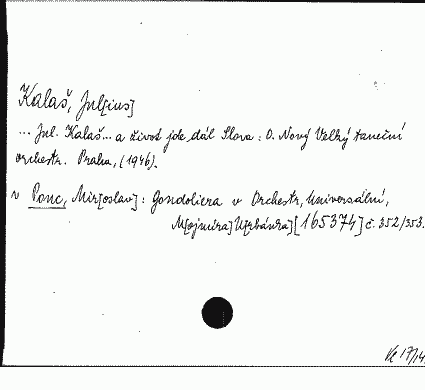 Kalaš, Jul[ius]
... Jul. Kalaš... a život jde dál Slova: O. Nový Velký taneční
orchestr. Praha, (1946).
v Ponc, Mir[oslav]: Gondoliera v Orchestr, Universální,
M[ojmíra] U[rbánka] [165374] č. 352/353.